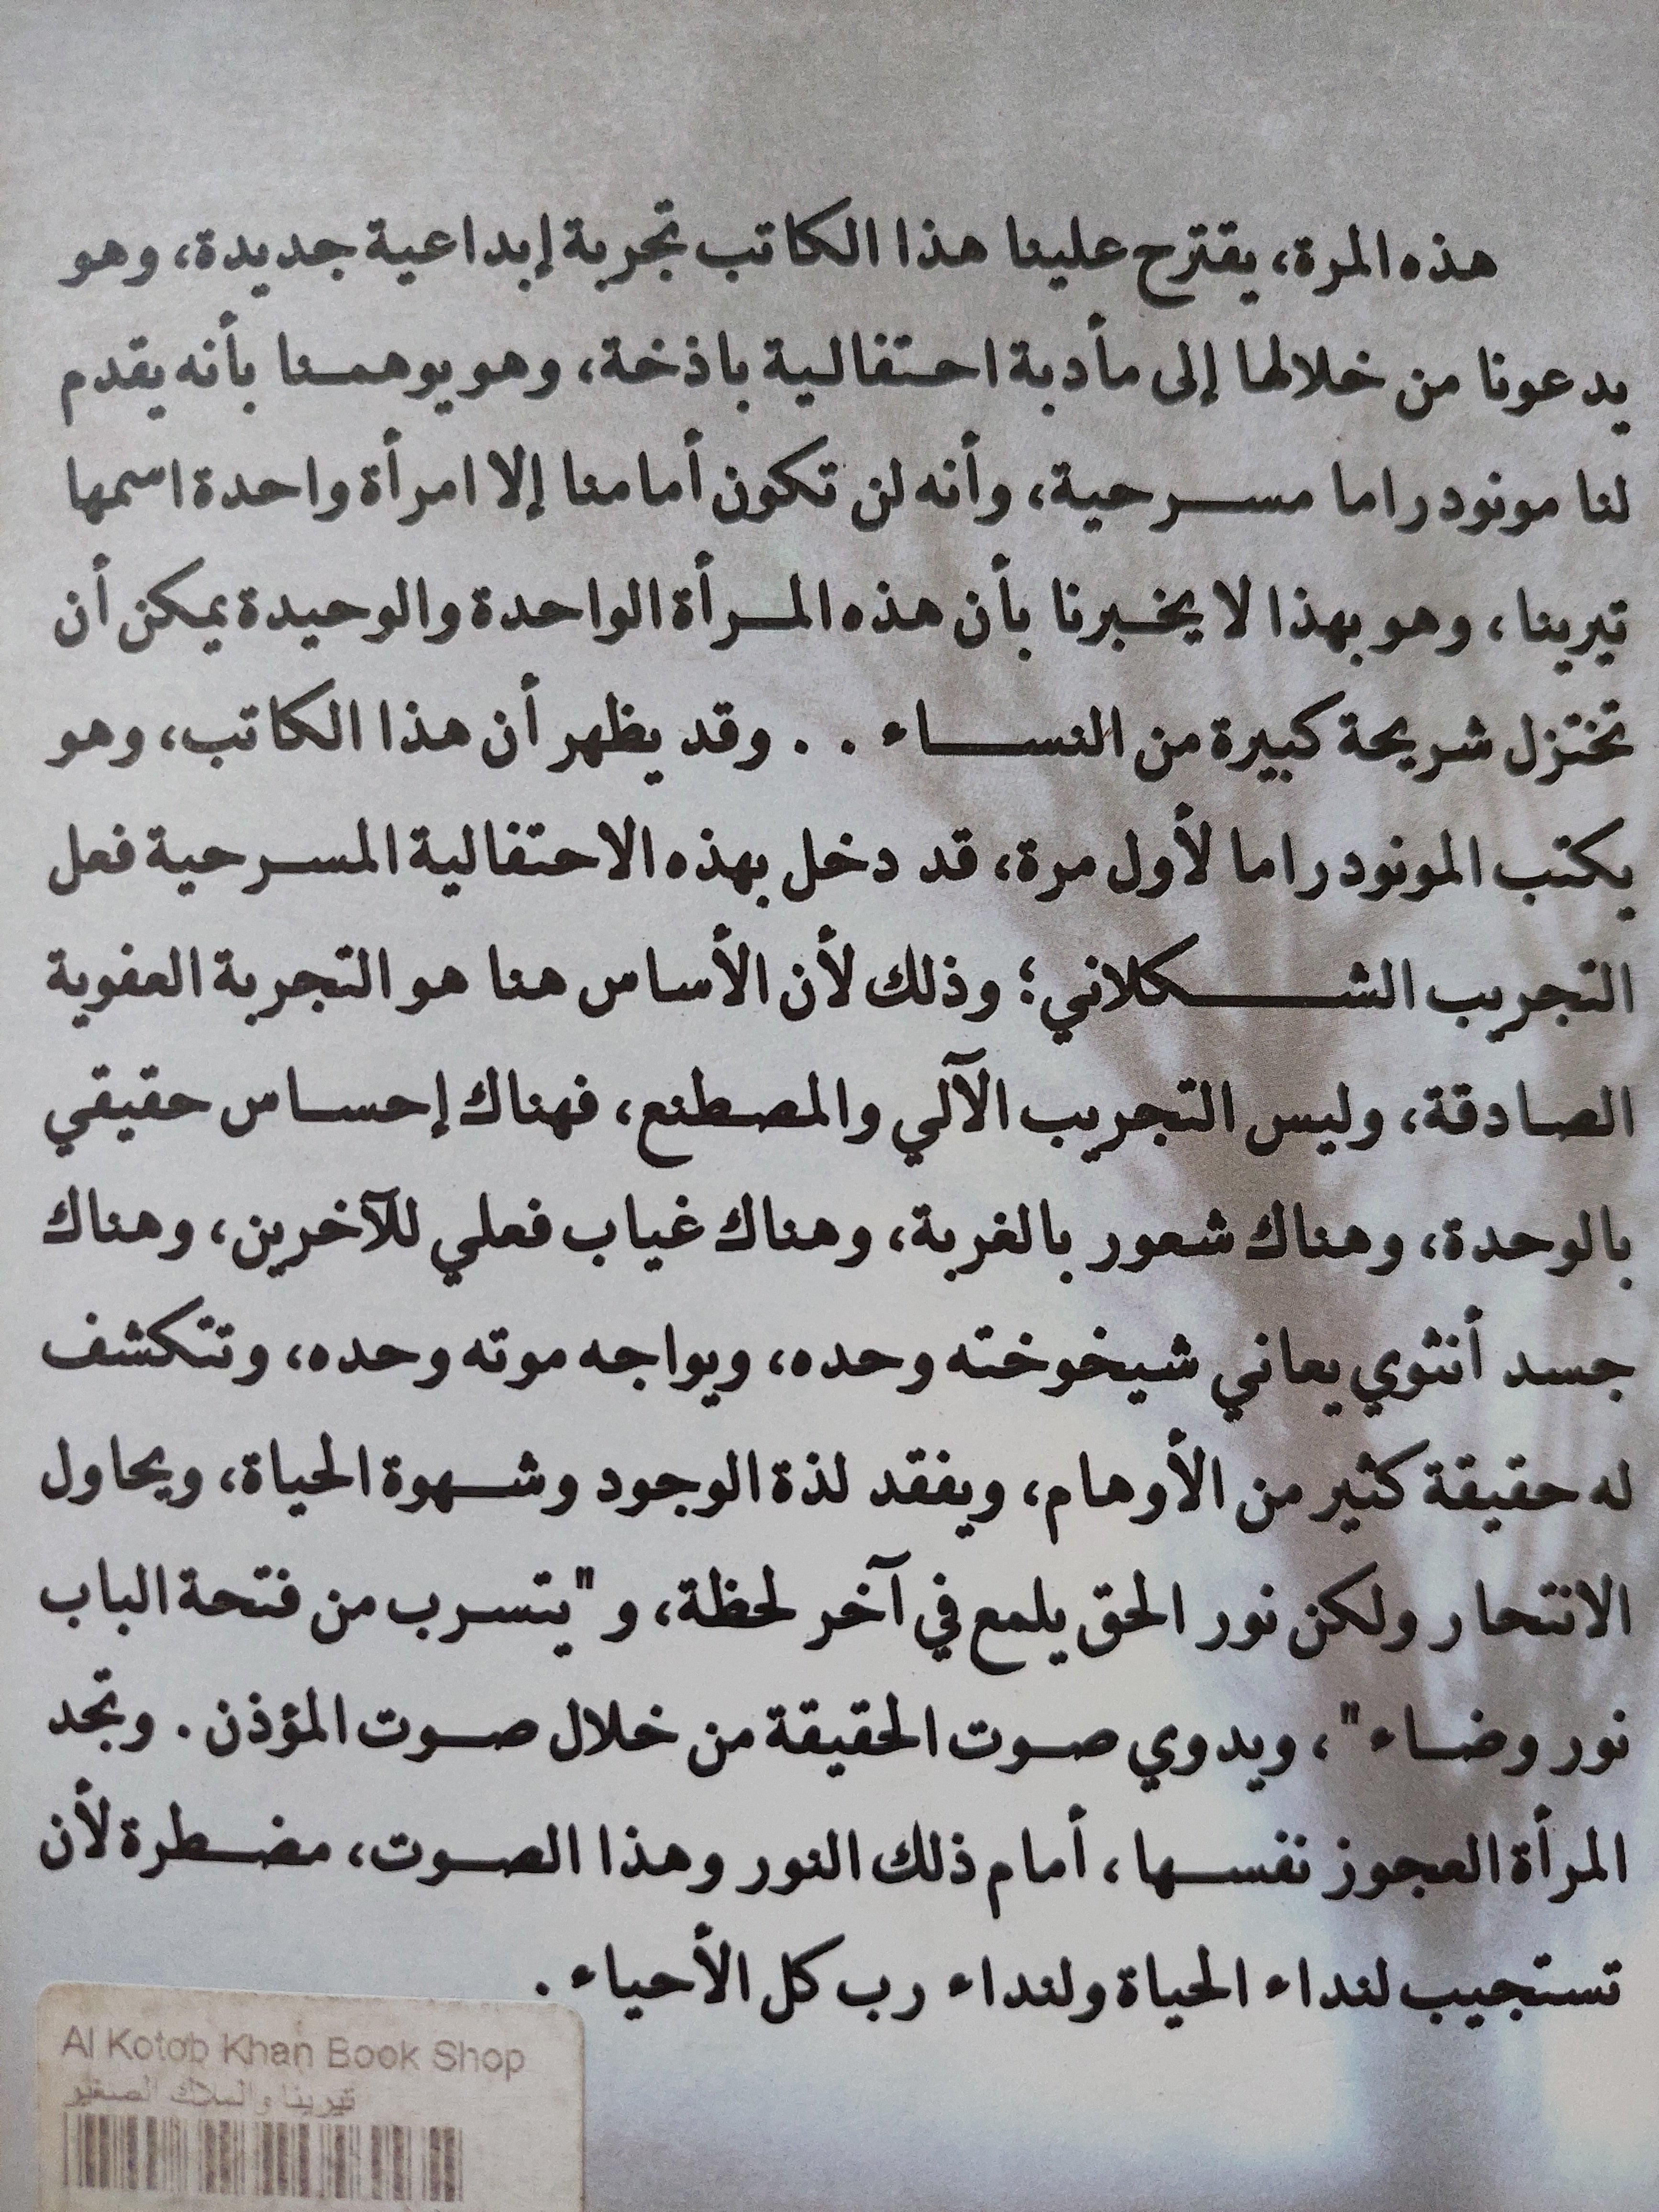 هذه المرة، يقترح علينا هذا الكاتب تجربة إبداعية جديدة، وهو
يدعونا من خلالها إلى مأدبة احتفالية باذخة، وهو يوهمنا بأنه يقدم
لنا مونودراما مسرحية، وأنه لن تكون أمامنا إلا امرأة واحدة اسمها
تيرينا، وهو بهذا لا يخبرنا بأن هذه المرأة الواحدة والوحيدة يمكن أن
تختزل شريحة كبيرة من النساء . . وقد يظهر أن هذا الكاتب، وهو
يكتب المونودراما لأول مرة، قد دخل بهذه الاحتفالية المسرحية فعل
التجريب الشكلاني؛ وذلك لأن الأساس هنا هو التجربة العفوية
الصادقة، وليس التجريب الآلي والمصطنع، فهناك إحساس حقيقي
بالوحدة، وهناك شعور بالغربة، وهناك غياب فعلي للآخرين، وهناك
جسد أنثوي يعاني شيخوخته وحده، ويواجه موته وحده، وتتكشف
له حقيقة كثير من الأوهام، ويفقد لذة الوجود وشهوة الحياة، ويحاول
الانتحار ولكن نور الحق يلمع في آخر لحظة، و "يتسرب من فتحة الباب
نور وضاء"، ويدوي صوت الحقيقة من خلال صوت المؤذن. وتجد
المرأة العجوز نفسها، أمام ذلك النور وهذا الصوت، مضطرة لأن
تستجيب لنداء الحياة ولنداء رب كل الأحياء.
Al Kotob Khan Book Shop
تيرينا والملاك الصغير